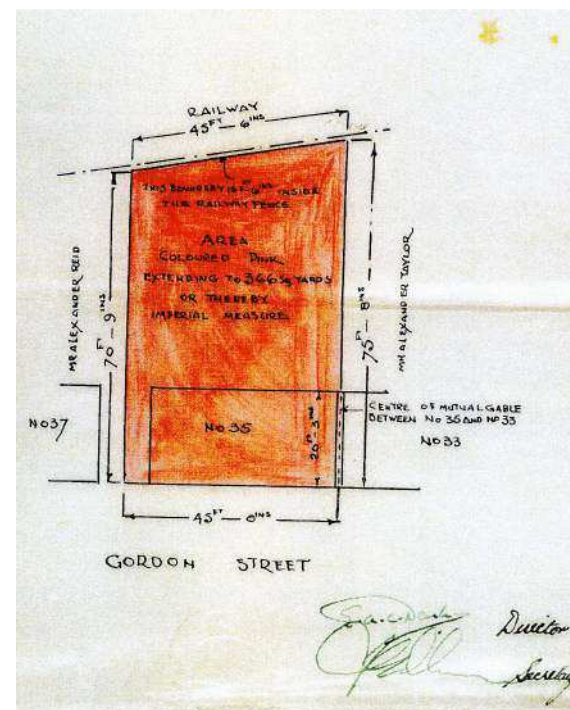 RAILWAY
45FT — 6INS
THIS BOUNDARY IS 6INS INSIDE
THE RAILWAY FENCE
AREA
COLOURED PINK
EXTENDING TO 366 SQ YARDS
OR THEREBY
IMPERIAL MEASURE
MR ALEXANDER REID
70FT — 9INS
75FT — 8INS
MR ALEXANDER TAYLOR
NO 37
NO 35
20FT — 3INS
CENTRE OF MUTUAL GABLE
BETWEEN NO 35 AND NO 33
NO 33
45FT — 0INS
GORDON STREET
Director